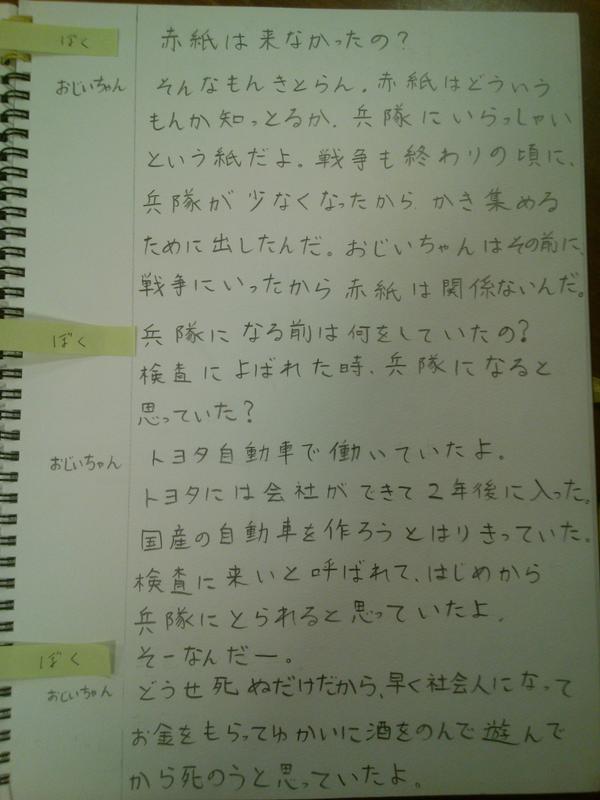 ぼく 赤紙は来なかったの？
おじいちゃん そんなもんきとらん。赤紙はどういう
もんか知っとるか。兵隊にいらっしゃい
という紙だよ。戦争も終わりの頃に、
兵隊が少なくなったから、かき集める
ために出したんだ。おじいちゃんはその前に、
戦争にいったから赤紙は関係ないんだ。
ぼく 兵隊になる前は何をしていたの？
検査によばれた時、兵隊になると
思っていた？
おじいちゃん トヨタ自動車で働いていたよ。
トヨタには会社ができて2年後に入った。
国産の自動車を作ろうとはりきっていた。
検査に来いと呼ばれて、はじめから
兵隊にとられると思っていたよ。
ぼく そーなんだー。
おじいちゃん どうせ死ぬだけだから、早く社会人になって
お金をもらってゆかいに酒をのんで遊んで
から死のうと思っていたよ。